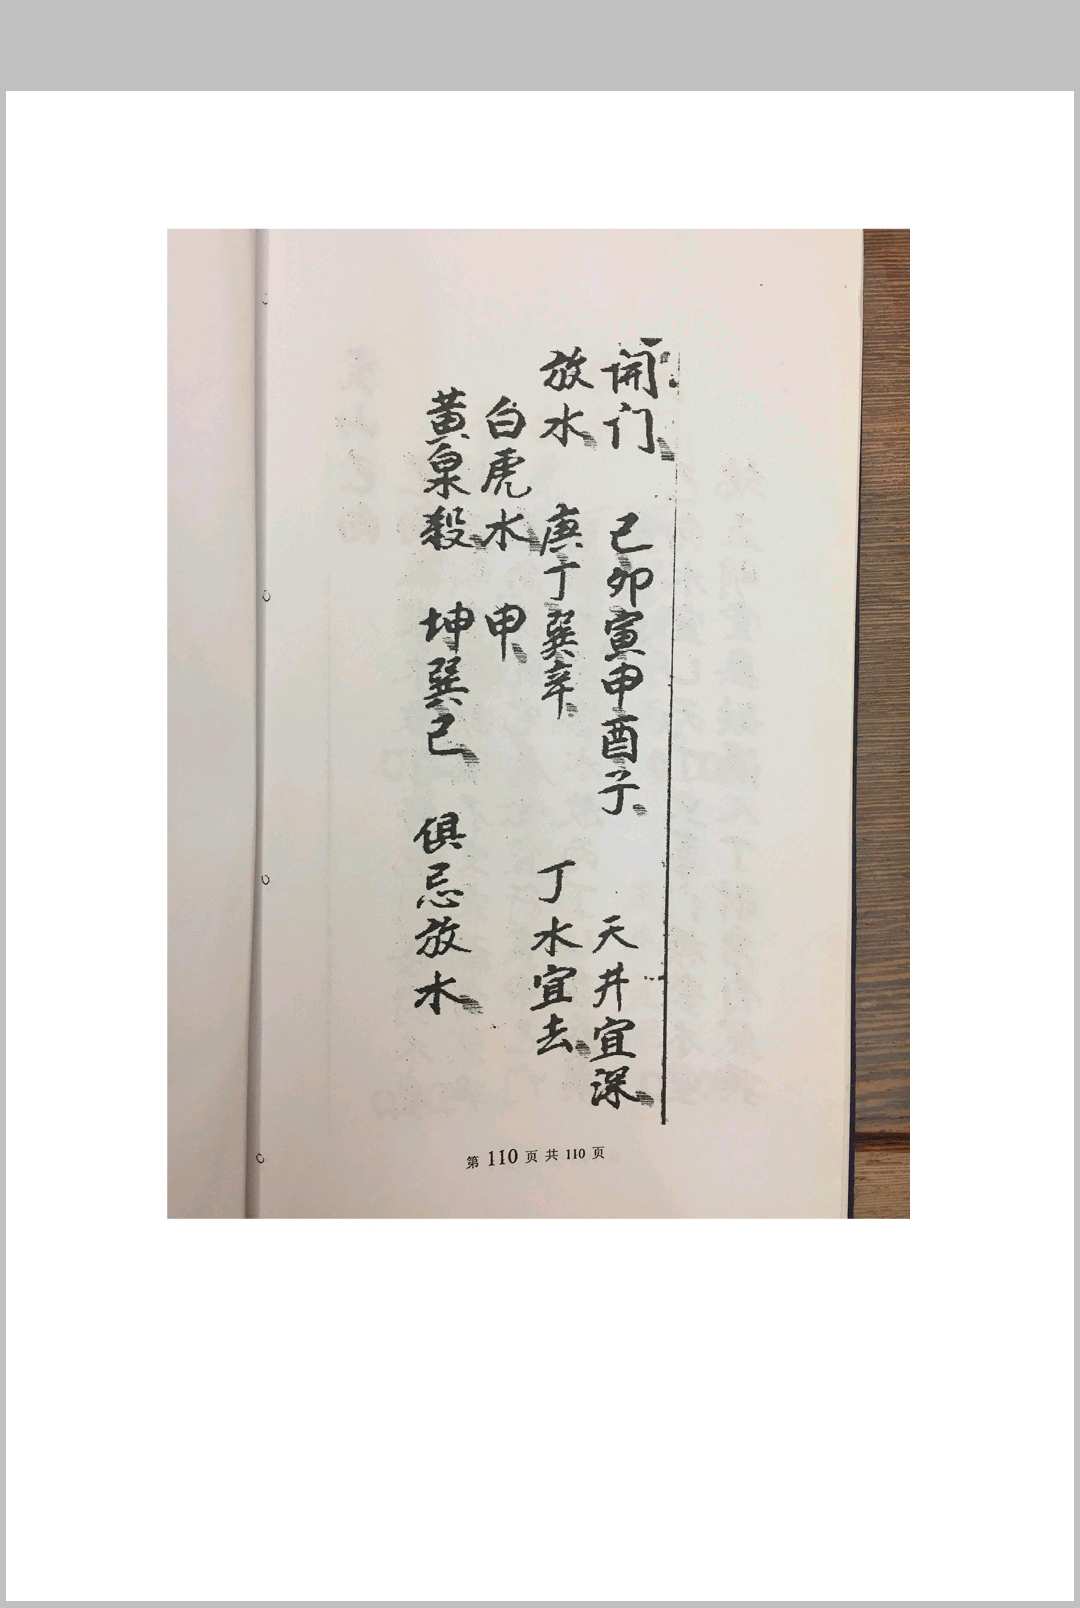 開门 己卯寅申酉子 天井宜深
放水 庚丁巽辛 丁水宜去
白虎水 申
黄泉殺 坤巽己 俱忌放水
第 110 页 共 110 页